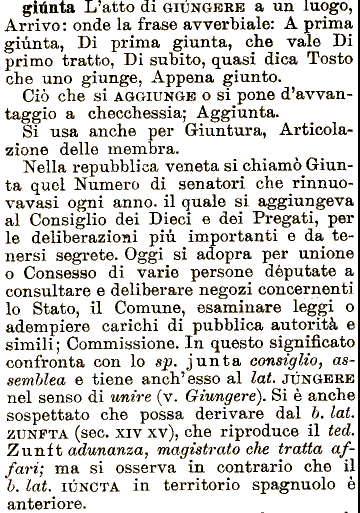 giúnta L'atto di GIÚNGERE a un luogo,
Arrivo: onde la frase avverbiale: A prima
giúnta, Di prima giunta, che vale Di
primo tratto, Di subito, quasi dica Tosto
che uno giunge, Appena giunto.
Ciò che si AGGIUNGE o si pone d'avvan-
taggio a checchessia; Aggiunta.
Si usa anche per Giuntura, Articola-
zione delle membra.
Nella repubblica veneta si chiamò Giun-
ta quel Numero di senatori che rinnuo-
vavasi ogni anno. il quale si aggiungeva
al Consiglio dei Dieci e dei Pregati, per
le deliberazioni piú importanti e da te-
nersi segrete. Oggi si adopra per unione
o Consesso di varie persone députate a
consultare e deliberare negozi concernenti
lo Stato, il Comune, esaminare leggi o
adempiere carichi di pubblica autorità e
simili; Commissione. In questo significato
confronta con lo sp. junta consiglio, as-
semblea e tiene anch'esso al lat. JÚNGERE
nel senso di unire (v. Giungere). Si è anche
sospettato che possa derivare dal b. lat.
ZUNFTA (sec. XIV XV), che riproduce il ted.
Zunft adunanza, magistrato che tratta af-
fari; ma si osserva in contrario che il
b. lat. IÚNCTA in territorio spagnuolo è
anteriore.